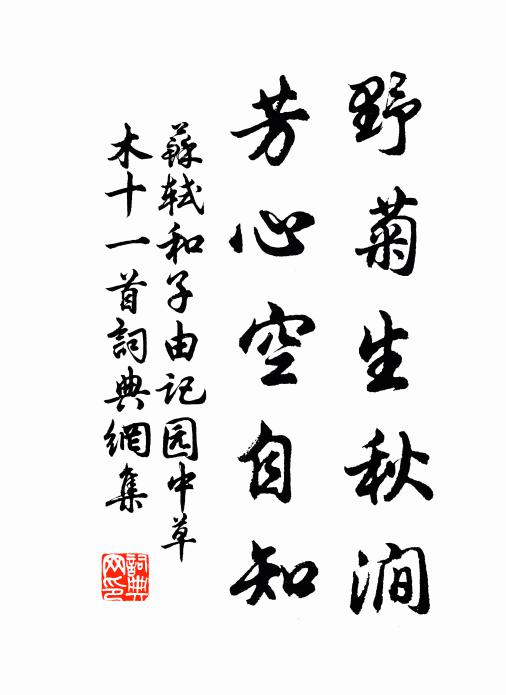 野菊生秋澗
芳心空自知
蘇轼和子由記园中草
木十一首詞典網集
詞典
网印